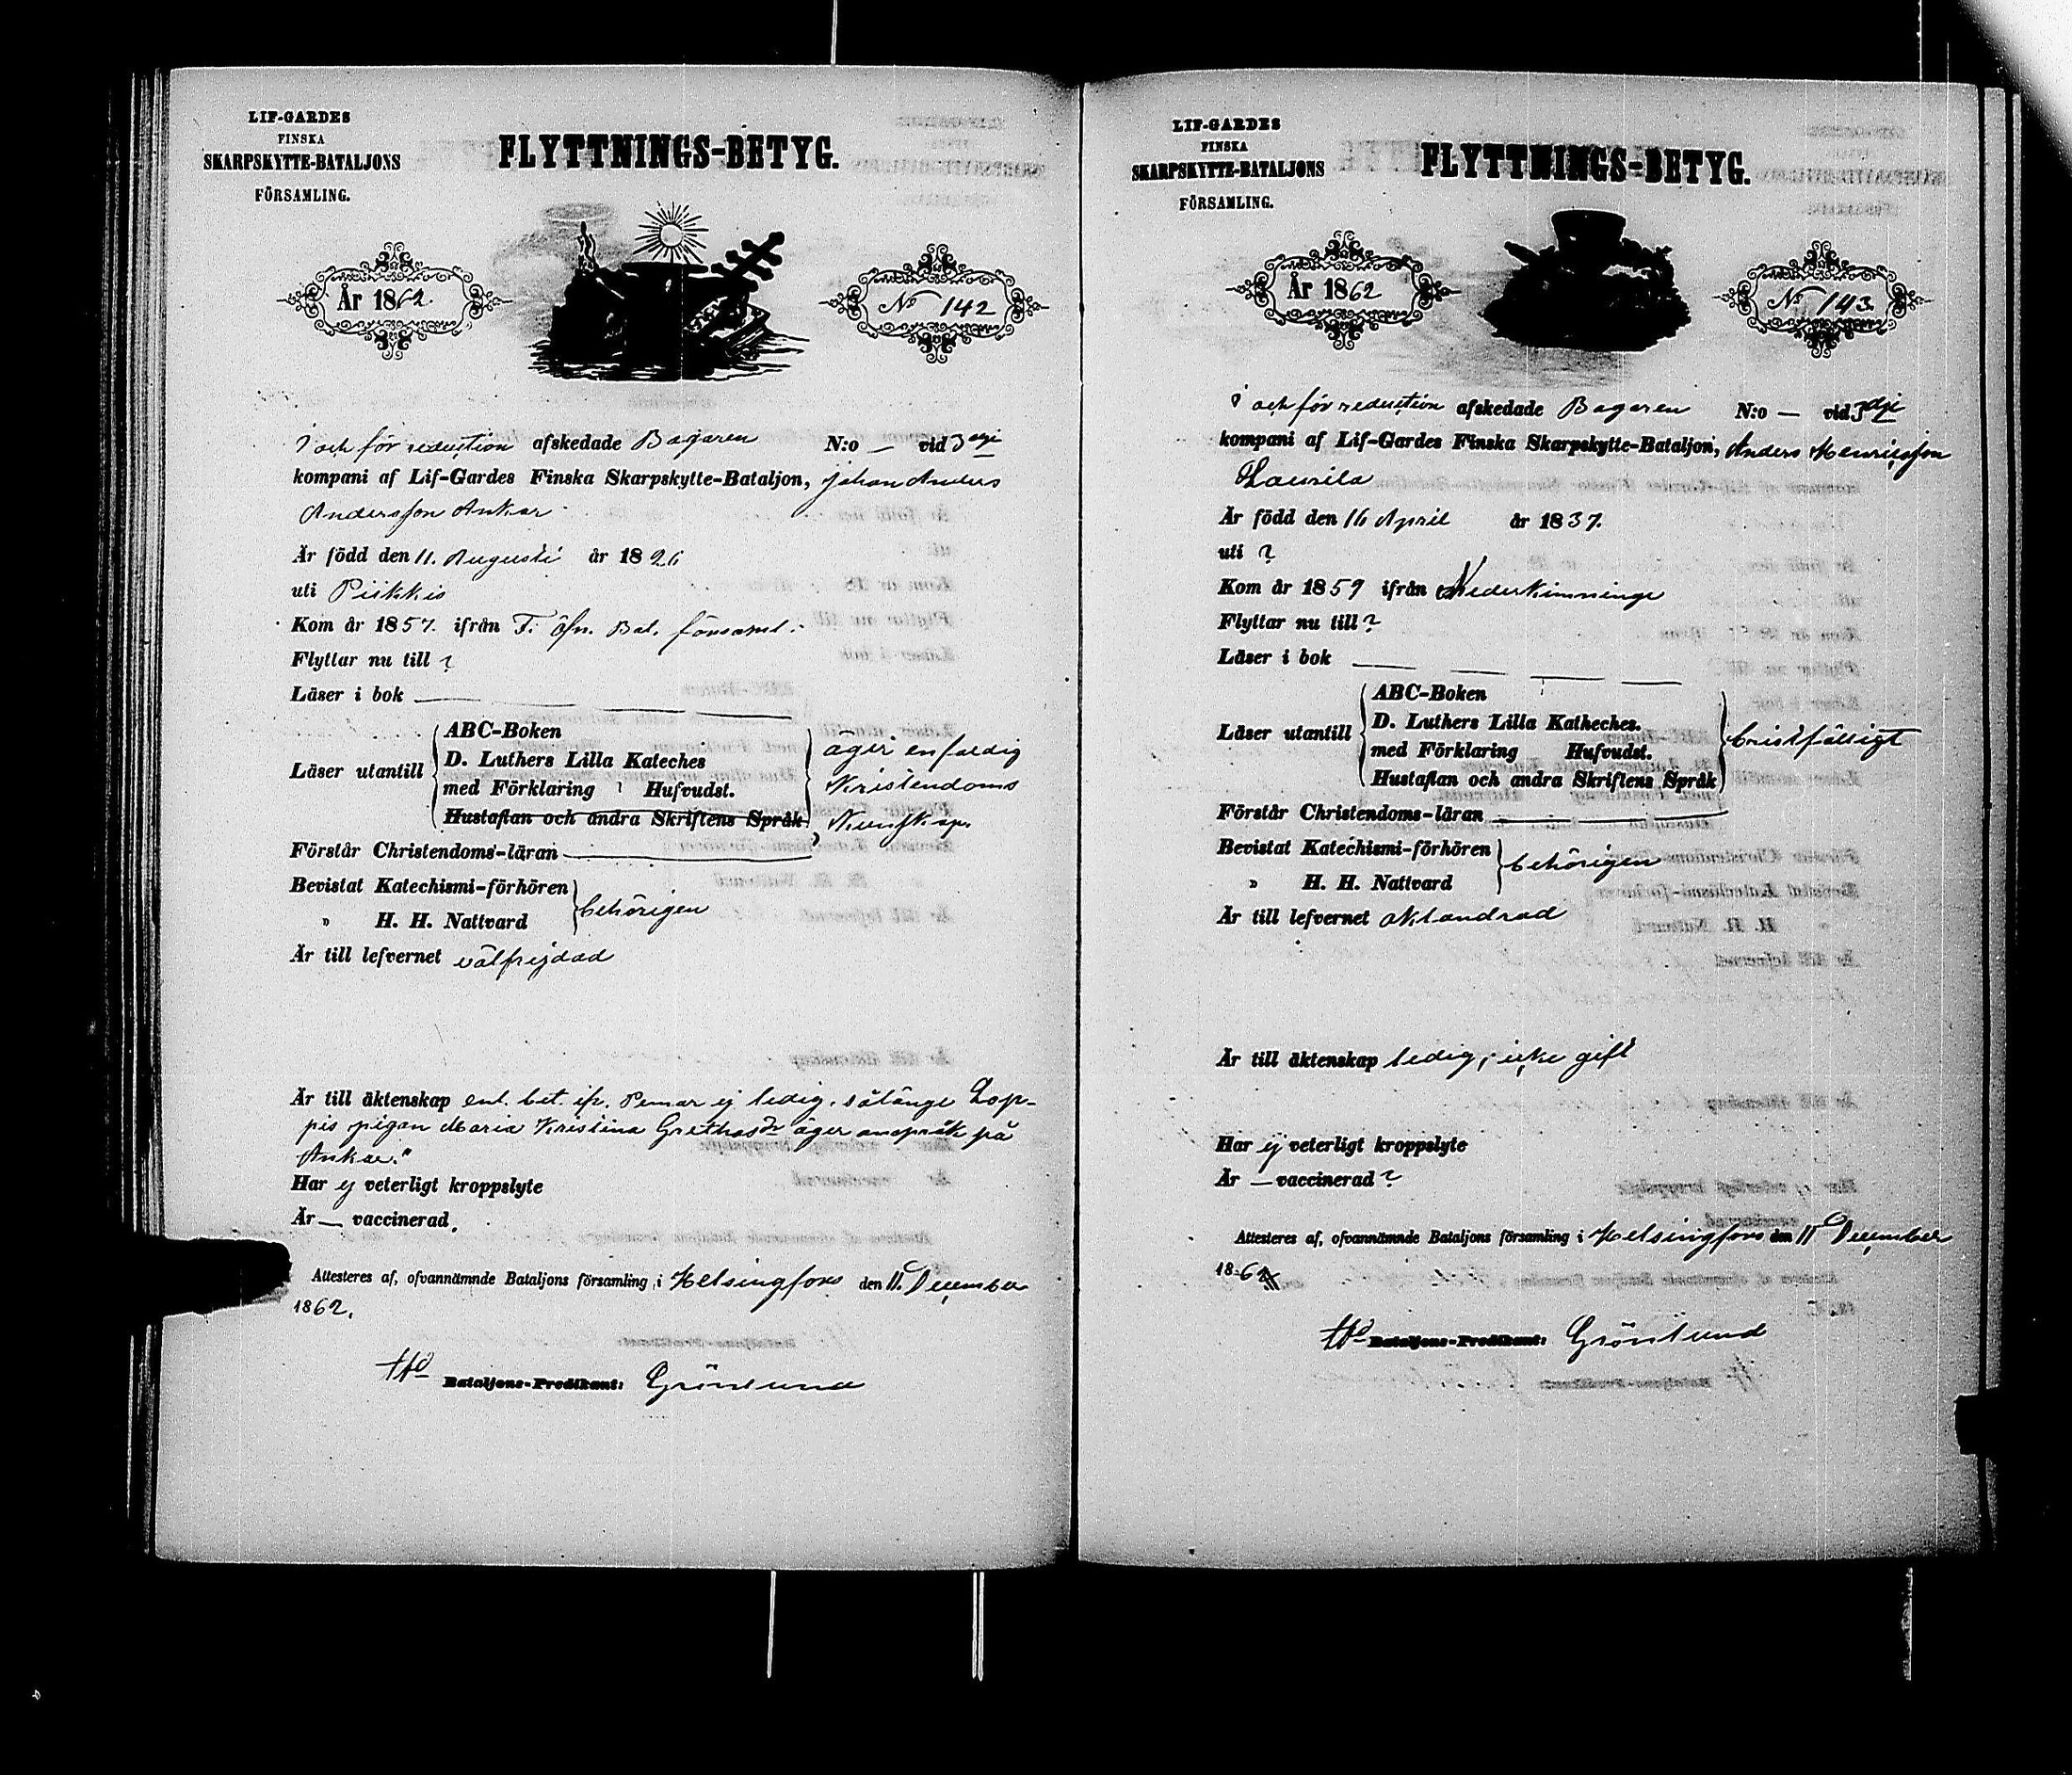 LIF-GARDES
FINSKA
SKARPSKYTTE-BATALJONS
FÖRSAMLING.
FLYTTNINGS-BETYG.
År 1862.
No 142
I och för reduction afskedade Bagaren N:o — vid 3dje
kompani af Lif-Gardes Finska Skarpskytte-Bataljon, Johan Anders
Andersson Ankar
Är född den 11. Augusti år 1826
uti Piikkis
Kom år 1857. ifrån F. öfn. Bat. församl.
Flyttar nu till ?
Läser i bok —
Läser utantill
ABC-Boken
D. Luthers Lilla Kateches
med Förklaring Hufvudst.
Hustaflan och andra Skriftens Språk
äger enfaldig
Kristendoms
Kunskap.
Förstår Christendoms-läran —
Bevistat Katechismi-förhören
" H. H. Nattvard
behörigen
Är till lefvernet välfrejdad
Är till äktenskap enl. bet. ifr. Pemar ej ledig, sålänge Lop-
pis pigan Maria Kristina Grethasdr äger anspråk på
Ankar."
Har ej veterligt kroppslyte
Är — vaccinerad.
Attesteras af, ofvannämnde Bataljons församling i Helsingfors den 11. December
1862.
Bataljons-Predikant: Grönlund
LIF-GARDES
FINSKA
SKARPSKYTTE-BATALJONS
FÖRSAMLING.
FLYTTNINGS-BETYG.
År 1862
No 143.
I och för reduction afskedade Bagaren N:o — vid 3dje
kompani af Lif-Gardes Finska Skarpskytte-Bataljon, Anders Henriksson
Laurila
Är född den 16 April år 1837.
uti ?
Kom år 1859 ifrån Nederkimminge
Flyttar nu till ?
Läser i bok —
Läser utantill
ABC-Boken
D. Luthers Lilla Katheches.
med Förklaring Hufvudst.
Hustaflan och andra Skriftens Språk
bristfälligt
Förstår Christendoms-läran —
Bevistat Katechismi-förhören
" H. H. Nattvard
behörigen
Är till lefvernet oklandrad
Är till äktenskap ledig, icke gift
Har ej veterligt kroppslyte
Är — vaccinerad ?
Attesteras af, ofvannämnde Bataljons församling i Helsingfors den 11 December
1862
Bataljons-Predikant: Grönlund